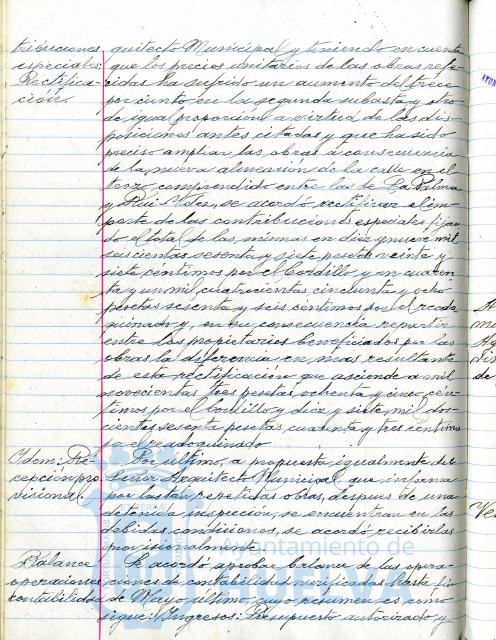 tribuciones
especiales:
Rectifica-
ción.
quitecto Municipal y teniendo en cuenta
que los precios unitarios de las obras refe-
ridas ha sufrido un aumento del trece
por ciento en la segunda subasta y otro
de igual proporción a virtud de las dis-
posiciones antes citadas y que ha sido
preciso ampliar las obras a consecuencia
de la nueva alineación de la calle en el
trozo comprendido entre las de La Palma
y Rui Velez, se acordó rectificar el im-
porte de las contribuciones especiales fijan-
do el total de las mismas en diez y nueve mil
seiscientas sesenta y siete pesetas veinte y
siete céntimos por el bordillo y en cuaren-
ta y un mil cuatrocientas cincuenta y ocho
pesetas sesenta y seis céntimos por el reado-
quinado y, en su consecuencia repartir
entre los propietarios beneficiados por las
obras la diferencia en mas resultante
de esta rectificación que asciende a mil
novecientas tres pesetas, ochenta y cinco cén-
timos por el bordillo y diez y siete mil dos-
cientas sesenta pesetas cuarenta y tres céntimos
por el readoquinado
Idem: Re-
cepción pro-
visional.
Por ultimo, a propuesta igualmente del
Señor Arquitecto Municipal que informa
por las tan repetidas obras, despues de una
detenida inspección, se encuentran en las
debidas condiciones, se acordó recibirlas
provisionalmente
Balance
operaciones
contabilidad
Se acordó aprobar balance de las opera-
ciones de contabilidad verificadas hasta fin
de Mayo último, cuyo resumen es como
sigue: Ingresos: Presupuesto autorizado, y
Ayuntamiento de
HUELVA